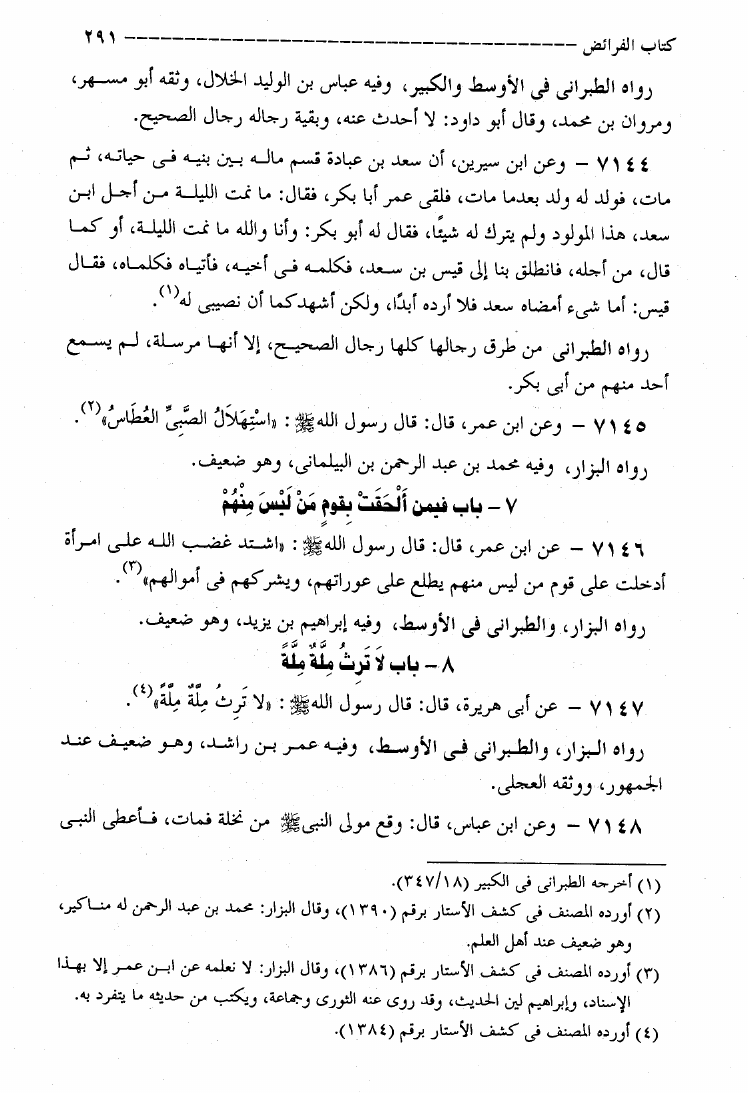 كتاب الفرائض ------------------------------------------ ٢٩١
رواه الطبرانى فى الأوسط والكبير، وفيه عباس بن الوليد الخلال، وثقه أبو مسهر،
ومروان بن محمد، وقال أبو داود: لا أحدث عنه، وبقية رجاله رجال الصحيح.
٧١٤٤ – وعن ابن سيرين، أن سعد بن عبادة قسم ماله بين بنيه فى حياته، ثم
مات، فولد له ولد بعدما مات، فلقى عمر أبا بكر، فقال: ما نمت الليلة من أجل ابن
سعد، هذا المولود ولم يترك له شيئًا، فقال له أبو بكر: وأنا والله ما نمت الليلة، أو كما
قال، من أجله، فانطلق بنا إلى قيس بن سعد، فكلمه فى أخيه، فأتياه فكلماه، فقال
قيس: أما شىء أمضاه سعد فلا أرده أبدًا، ولكن أشهدكما أن نصيبى له(١).
رواه الطبرانى من طرق رجالها كلها رجال الصحيح، إلا أنها مرسلة، لم يسمع
أحد منهم من أبى بكر.
٧١٤٥ – وعن ابن عمر، قال: قال رسول الله ﷺ: «اسْتِهْلاَلُ الصَّبِىِّ العُطَاسُ»(٢).
رواه البزار، وفيه محمد بن عبد الرحمن بن البيلمانى، وهو ضعيف.
٧ – باب فيمن أَلْحَقَتْ بِقومٍ مَنْ لَيْسَ مِنْهُمْ
٧١٤٦ – عن ابن عمر، قال: قال رسول الله ﷺ: «اشتد غضب الله على امرأة
أدخلت على قوم من ليس منهم يطلع على عوراتهم، ويشركهم فى أموالهم»(٣).
رواه البزار، والطبرانى فى الأوسط، وفيه إبراهيم بن يزيد، وهو ضعيف.
٨ – باب لاَ تَرِثُ مِلَّةٌ مِلَّةً
٧١٤٧ – عن أبى هريرة، قال: قال رسول الله ﷺ: «لا تَرِثُ مِلَّةٌ مِلَّةً»(٤).
رواه البزار، والطبرانى فى الأوسط، وفيه عمر بن راشد، وهو ضعيف عند
الجمهور، ووثقه العجلى.
٧١٤٨ – وعن ابن عباس، قال: وقع مولى النبى ﷺ من نخلة فمات، فأعطى النبى
(١) أخرجه الطبرانى فى الكبير (٣٤٧/١٨).
(٢) أورده المصنف فى كشف الأستار برقم (١٣٩٠)، وقال البزار: محمد بن عبد الرحمن له مناكير،
وهو ضعيف عند أهل العلم.
(٣) أورده المصنف فى كشف الأستار برقم (١٣٨٦)، وقال البزار: لا نعلمه عن ابن عمر إلا بهذا
الإسناد، وإبراهيم لين الحديث، وقد روى عنه الثورى وجماعة، ويكتب من حديثه ما يتفرد به.
(٤) أورده المصنف فى كشف الأستار برقم (١٣٨٤).